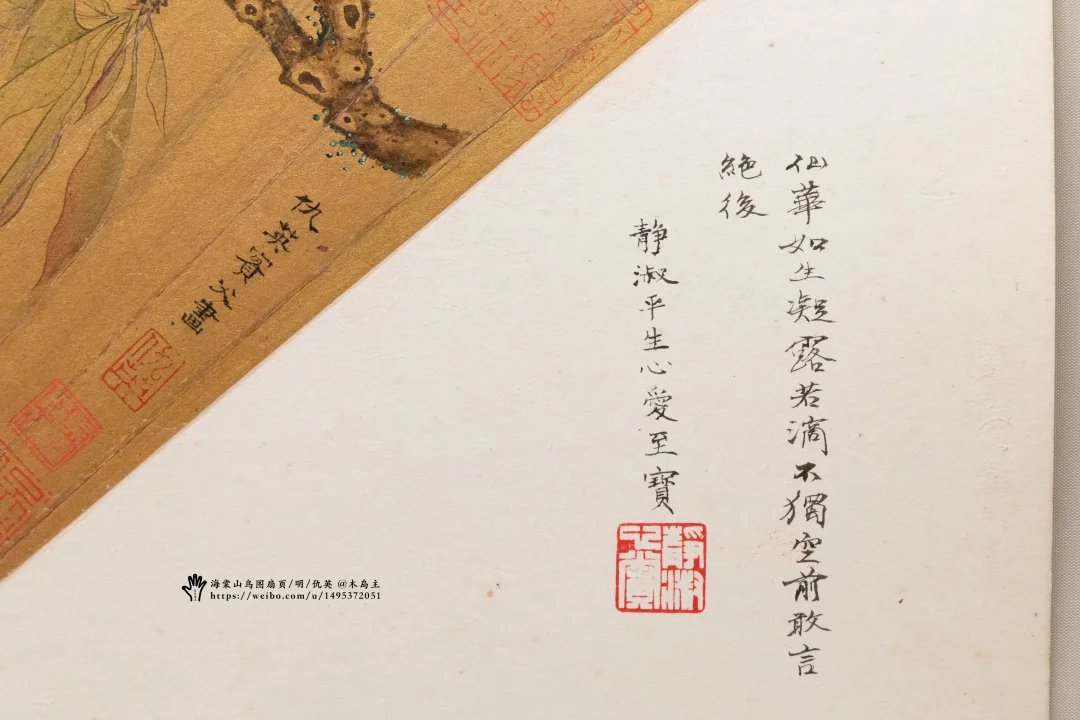 仙華如生凝露若滴不獨空前敢言
絕後
靜淑平生心愛至寶
靜淑心賞
仇英實父畫
海棠山鸟图扇页/明/仇英 @木鸟主
https://weibo.com/u/1495372051